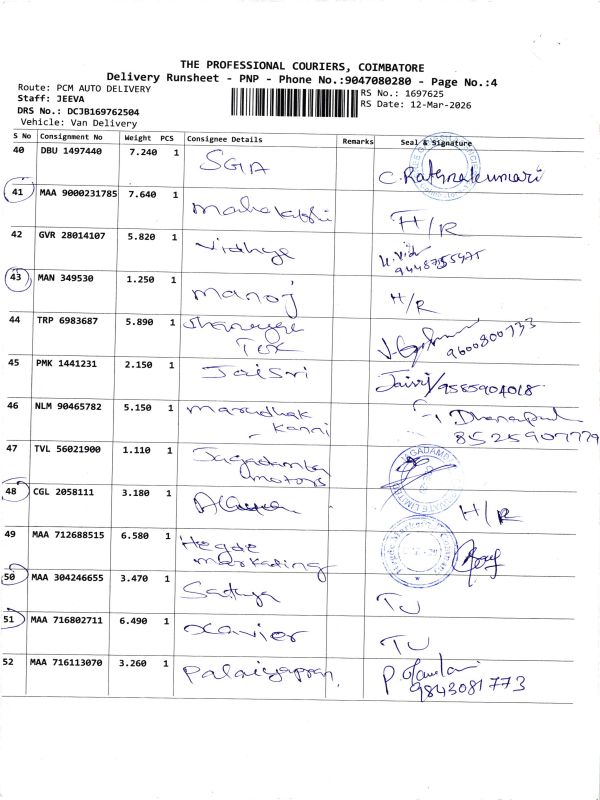 THE PROFESSIONAL COURIERS, COIMBATORE
Delivery Runsheet - PNP - Phone No.:9047080280 - Page No.:4
Route: PCM AUTO DELIVERY
Staff: JEEVA
DRS No.: DCJB169762504
Vehicle: Van Delivery
RS No.: 1697625
RS Date: 12-Mar-2026
S No Consignment No Weight PCS Consignee Details Remarks Seal & Signature
40 DBU 1497440 7.240 1 SGA C. Rathnakumari
41 MAA 9000231785 7.640 1 H/R
42 GVR 28014107 5.820 1 Vidhya
43 MAN 349530 1.250 1 Manoj H/R
44 TRP 6983687 5.890 1 Tex 9600800733
45 PMK 1441231 2.150 1 JaiSri Jaisri/9585904018
46 NLM 90465782 5.150 1 Marudhak Kanni Dhanapal 8525907779
47 TVL 56021900 1.110 1 Jagadamba Motors
48 CGL 2058111 3.180 1 H/R
49 MAA 712688515 6.580 1 Hegde Marketing
50 MAA 304246655 3.470 1 Sathya TU
51 MAA 716802711 6.490 1 Xavier TU
52 MAA 716113070 3.260 1 Palaiyappan. 9843081773